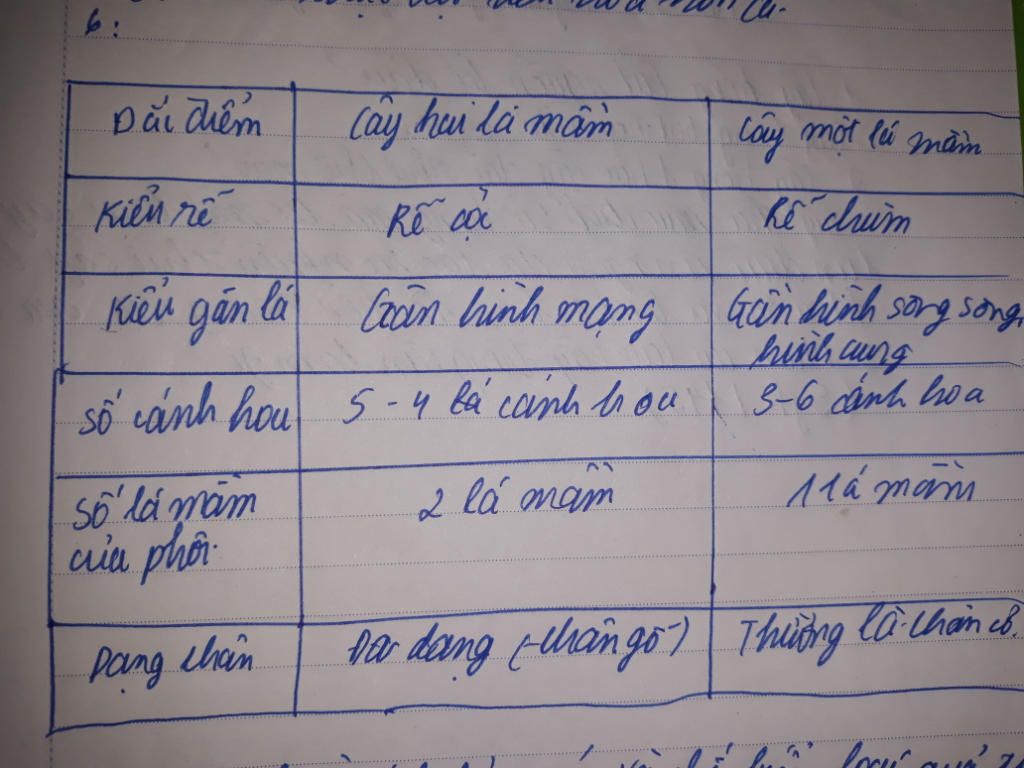 6:
Đắc điểm
Cây hai lá mầm
Cây một lá mầm
Kiểu rễ
Rễ cọc
Rễ chùm
Kiểu gân lá
Gân hình mạng
Gân hình song song,
hình cung
Số cánh hoa
5 - 4 lá cánh hoa
3-6 cánh hoa
Số lá mầm
của phôi.
2 lá mầm
1 lá mầm
Dạng thân
Đa dạng (-thân gỗ-)
Thường là thân cỏ.